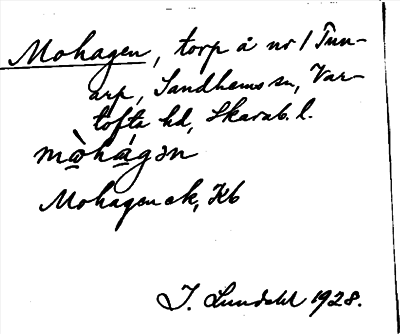 Mohagen, torp å nr 1 Tun-
arp, Sandhems sn, Var-
tofta hd, Skarab. l.
mòhágən
Mohagen ek, Kb
I. Lundahl 1928.